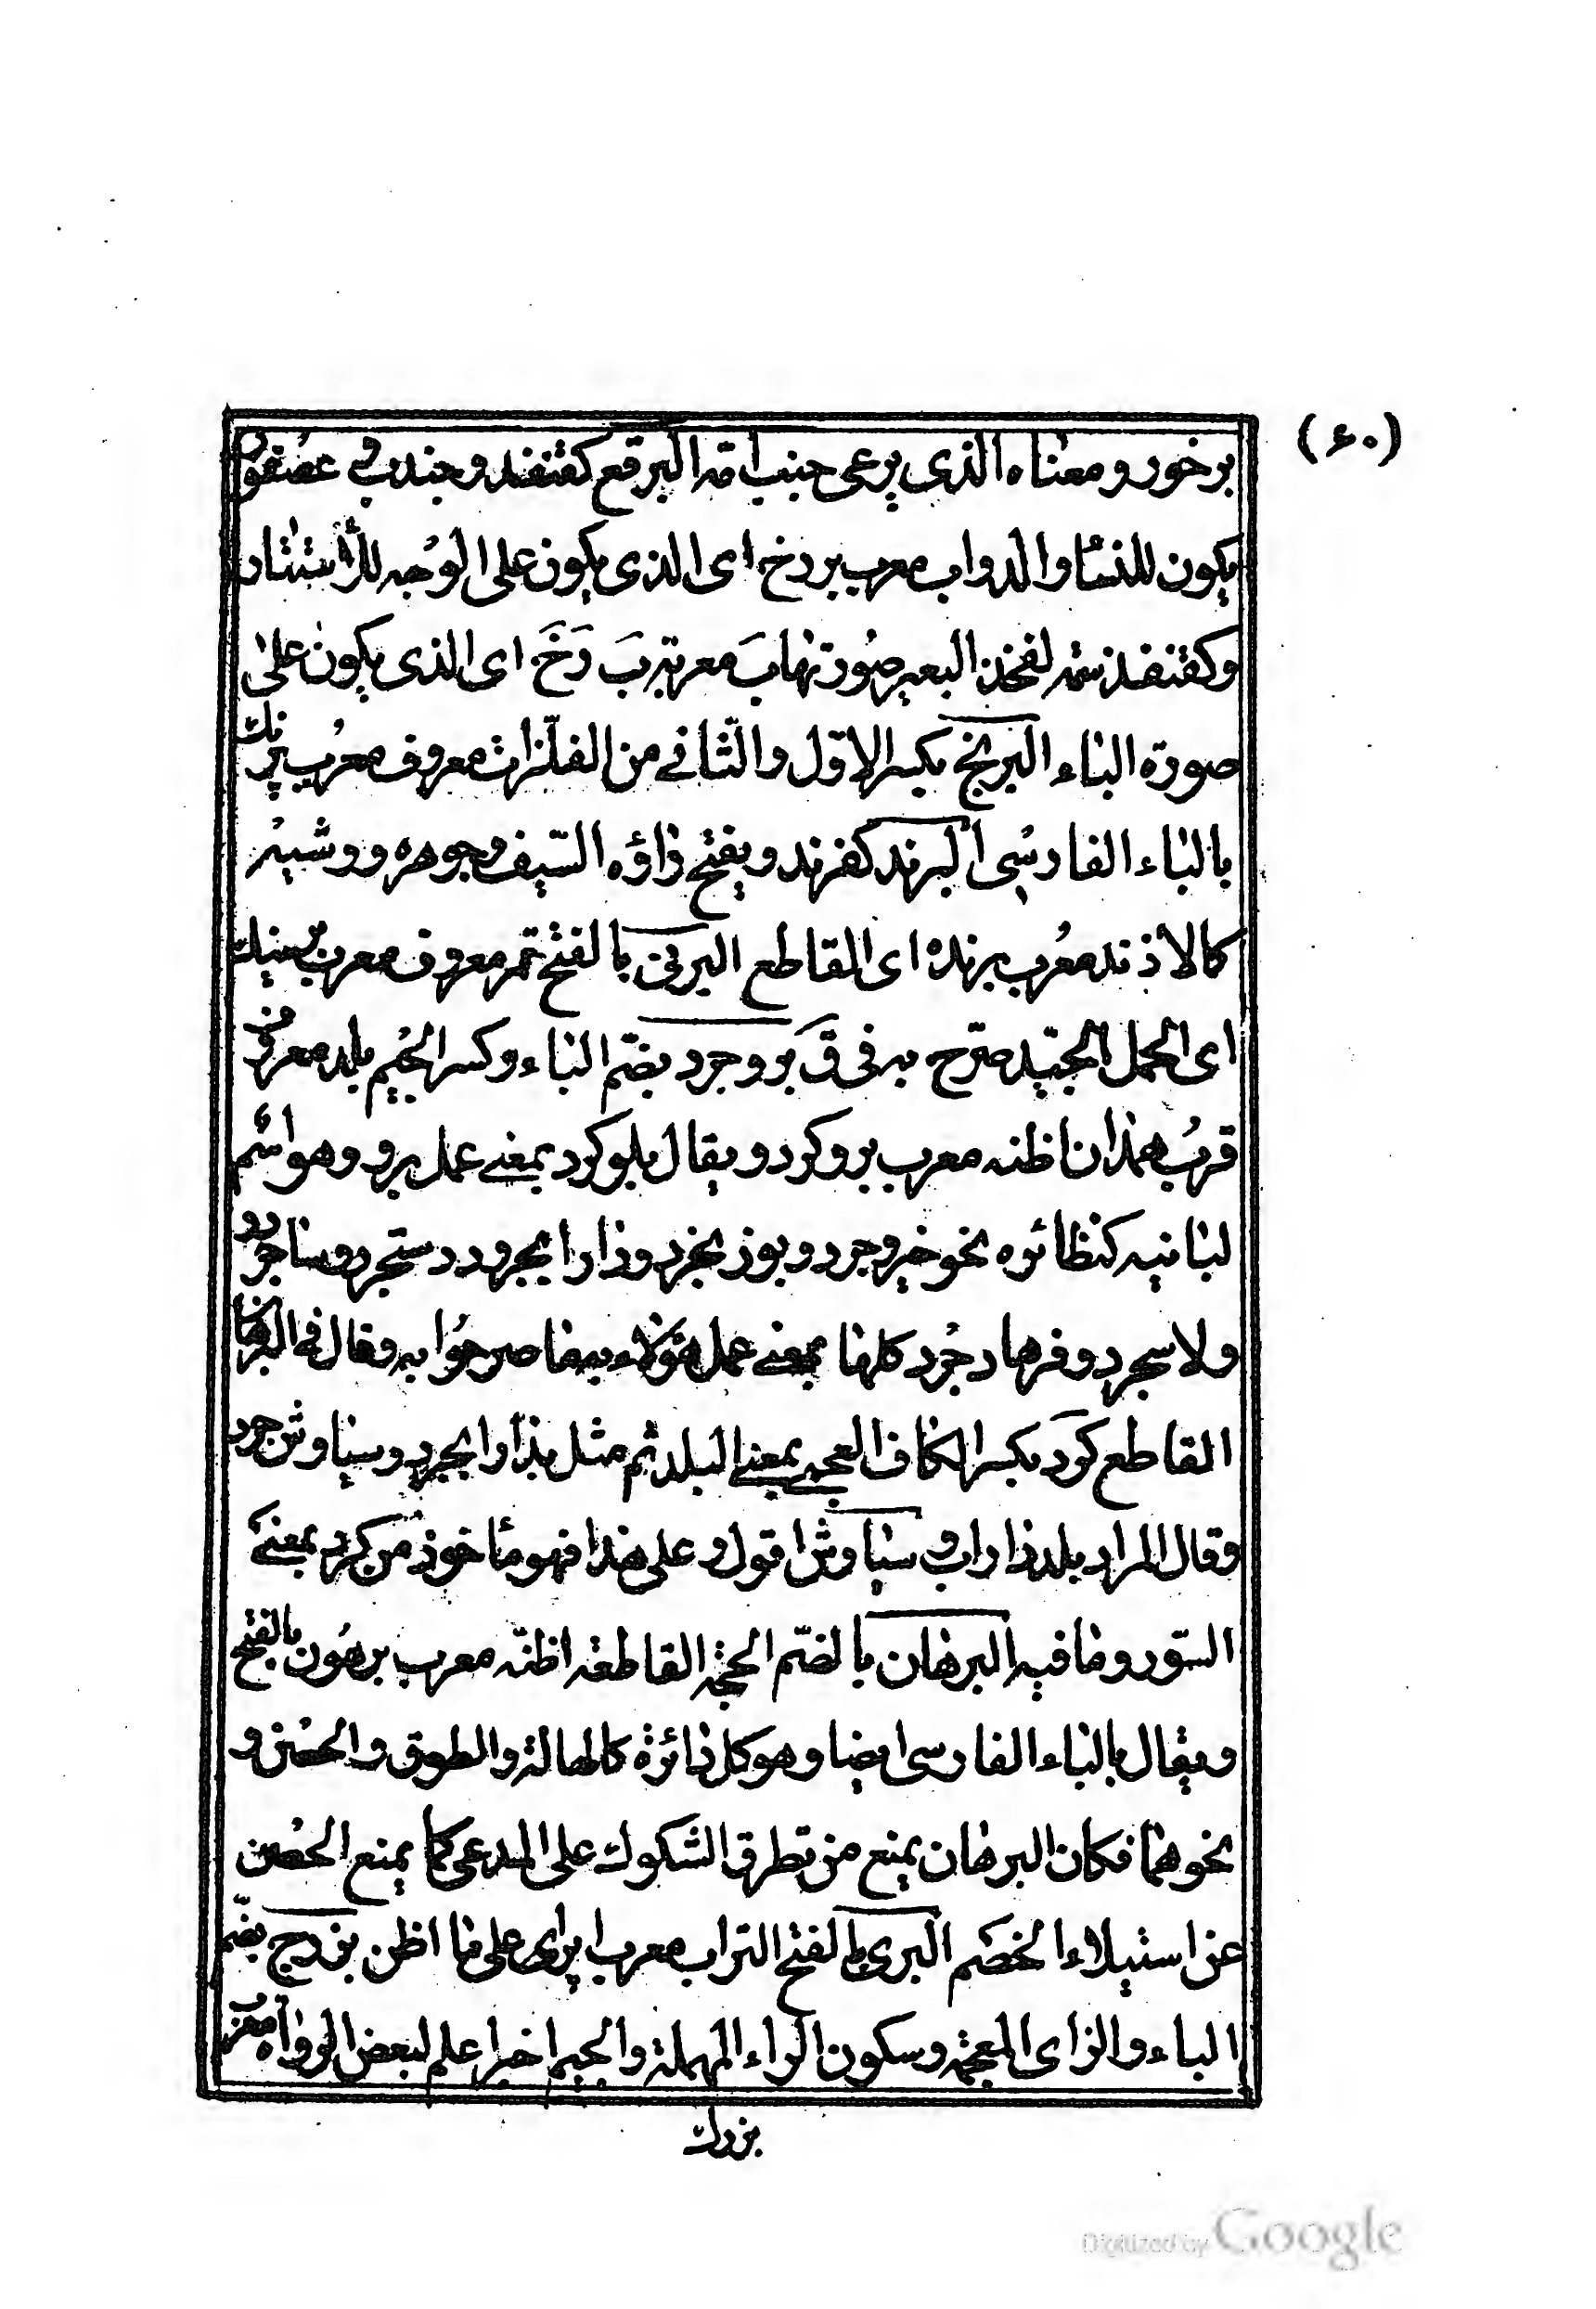 (۶۰)
برخور و معناه الذی یرعی جنب امّه البرقع کقنفذ و جندب و عصفور
یکون للنساء و الدواب معرب بر رخ ای الذی یکون علی الوجه للاستتار
و کقنفذ سمة لفخذ البعیر صورتها بَ معربة بَ رَخَ ای الذی یکون علی
صورة الباء البرنج بکسر الاول و الثانی من الفلزات معروف معرب برنک
بالباء الفارسی البرند کفرند و یفتح راؤه السیف و جوهره و وشیه
کالافرند معرب برنده ای القاطع البرنی بالفتح تمر معروف معرب بر نیک
ای الحمل الجید صرّح به فی ق بروجرد بضم الباء و کسر الجیم بلد معروف
قرب همذان اظنه معرب بروکرد و یقال بلوکرد بمعنی عمل برو و هو اسم
لبانیه کنظائره نحو خسروجرد و بوزنجرد و دارابجرود و دستجرد و ساجرد
و لاسجرد و فرهادجرد کلها بمعنی عمل هؤلاء بهذا صرحوا به و قال فی البرهان
القاطع کرد بکسر الکاف العجمی بمعنی البلد ثم مثل بدارابجرد و سیاوش جرد
و قال المراد بلد داراب و سیاوش اقول و علی هذا فهو مأخوذ من کرد بمعنی
السور و ما فیه البرهان بالضم الحجة القاطعة اظنه معرب برهون بالفتح
و یقال بالباء الفارسی ایضا و هو کل دائرة کالهالة و الطوق و الحصن و
نحوهما فکان البرهان یمنع من تطرق الشکوک علی المدعی کما یمنع الحصن
عن استیلاء الخصم البری بالفتح التراب معرب ابرای علی ما اظن بزرج بضم
الباء و الزای المعجمة و سکون الراء المهملة و الجیم اخیرا علم لبعض الرواة معرب
بزرک
Digitized by Google